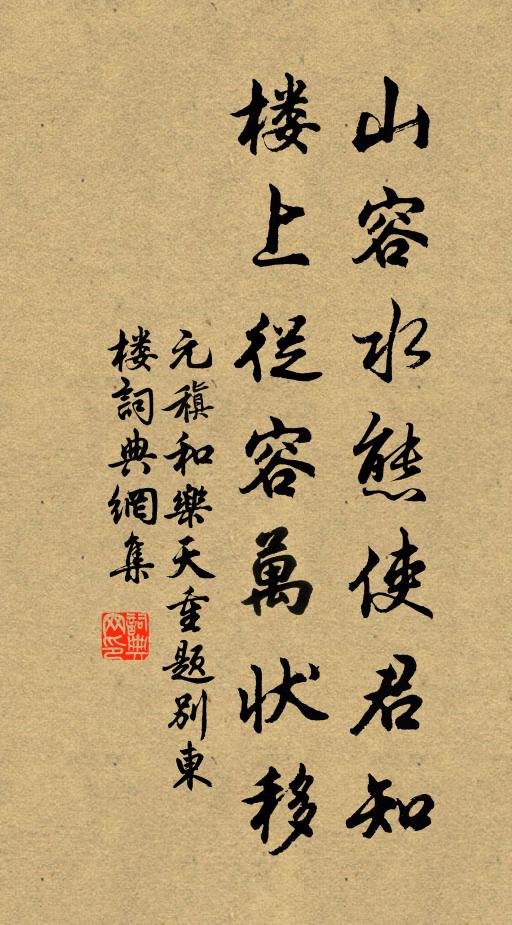 山容水態使君知
楼上從容萬狀移
元稹和樂天重题别東
楼詞典網集
詞典
网印